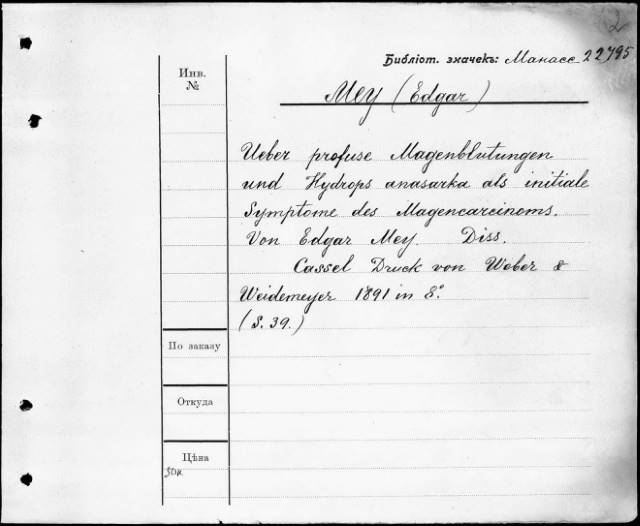 2
Библіот. значекъ: Манасс 22795
Инв.
№
Mey (Edgar)
Ueber profuse Magenblutungen
und Hydrops anasarka als initiale
Symptome des Magencarcinoms.
Von Edgar Mey. Diss.
Cassel Druck von Weber &
Weidemeyer 1891 in 8°.
(S. 39.)
По заказу
Откуда
Цѣна
50к